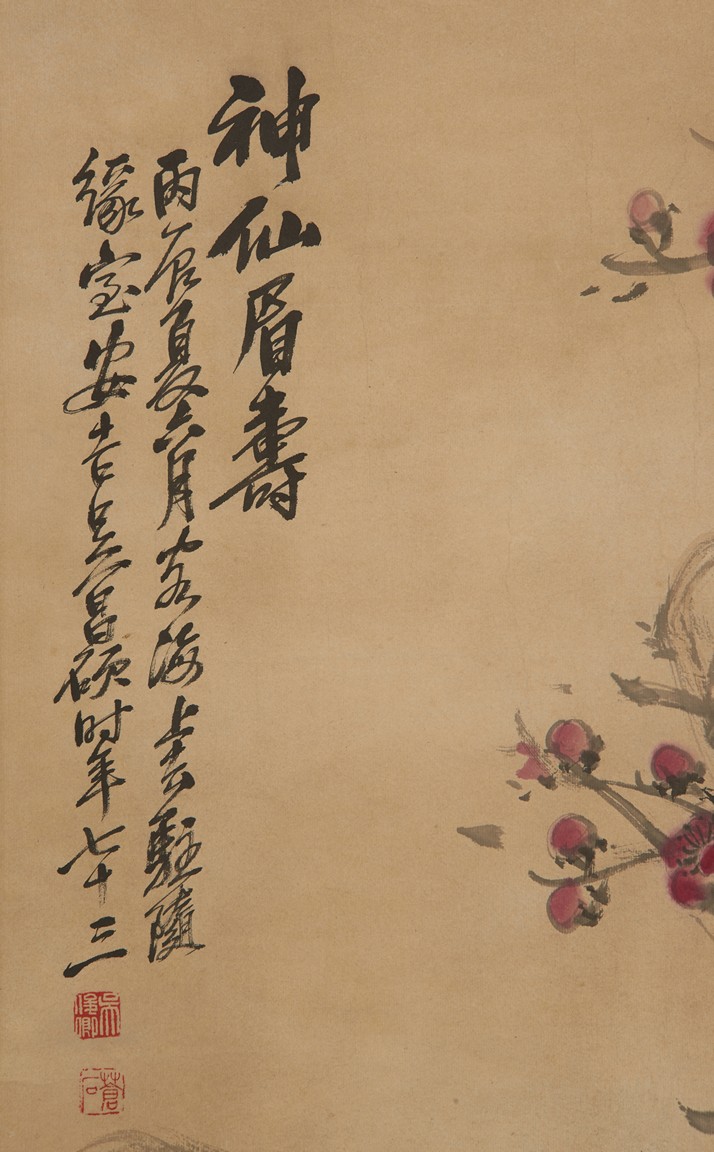 神仙眉壽
丙辰夏六月客海上去駐隨
緣室安吉吳昌碩時年七十三
吳俊卿
蒼石